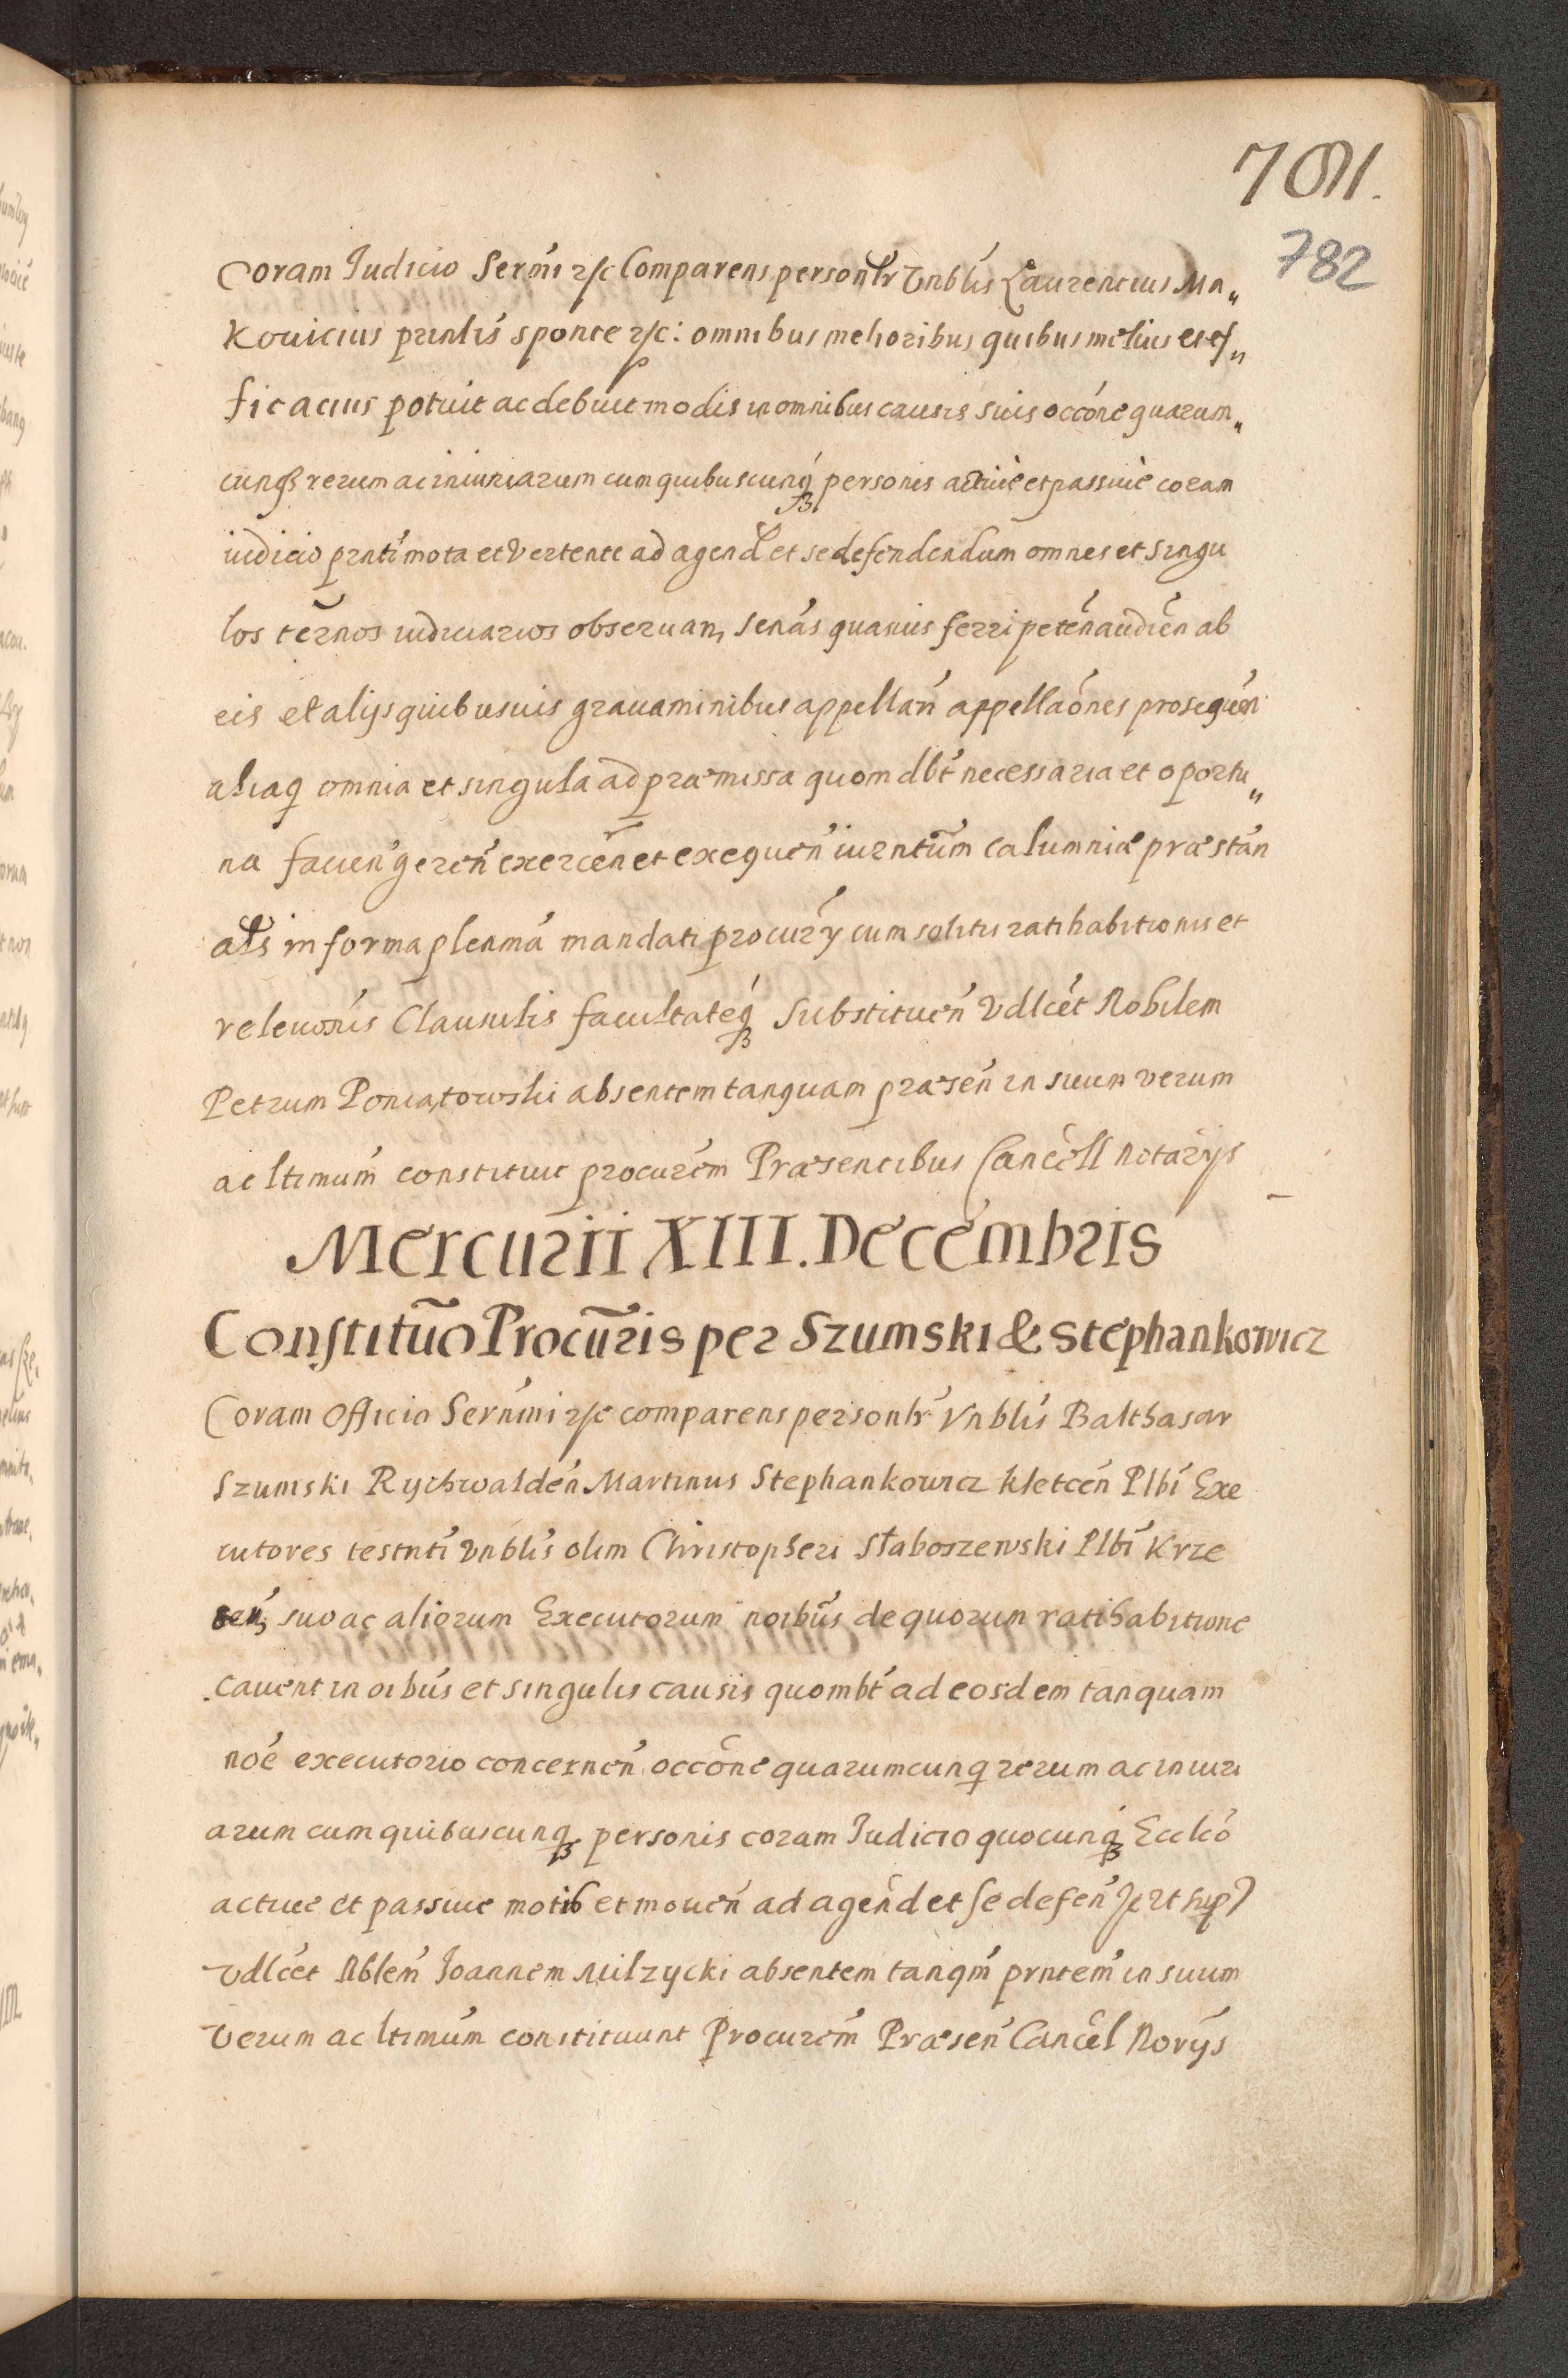 782
Coram Iudicio Sermi etc Comparens personlr Vnblis Laurentius Ma„
kouicius prinlis sponte etc: omnibus melioribus quibus melius et ef„
ficacius potuit ac debuit modis in omnibus causis suis occone quarum„
cunqз rerum ac iniuriarum cum quibuscunqз personis actiuè et passiuè coram
iudicio prnti mota et vertente ad agend et se defendendum omnes et singu
los termos iudiciarios obseruan, senas quasuis ferri peten audien ab
eis et alijs quibusuis grauaminibus appellan appellaones prosequen
aliaq omnia et singula ad præmissa quomdlbt necessaria et oportu„
na facien geren exercen et exequen iurntum calumniæ præstan
als in forma plenma mandati procurÿ cum solitis ratihabitionis et
releuonis Clausulis facultateqз Substituen Vdlcet Nobilem
Petrum Poniatowski absentem tanquam præsen in suum verum
ac ltimum constituit procurem Præsentibus Cancell notarÿs
Mercurii XIII. Decembris
Constituo Procuris per Szumski & Stephankowicz
Coram Officio Sernmi etc comparens personlr Vnblis Balthasar
Szumski Rychwalden Martinus Stephankowicz kletcen Plbi Exe
cutores testnti Vnblis olim Christopheri Słaboszewski Plbi Krze
sen, suo ac aliorum Executorum noibus de quorum ratihabitione
cauent in oibus et singulis causis quombt ad eosdem tanquam
noe executorio concernen occone quarumcunq rerum ac iniuri
arum cum quibuscunqз personis coram Iudicio quocunqз Ecclco
actiue et passiue motis et mouen ad agend et se defen etc ut sup
Vdlcet Nblem Ioannem Milzycki absentem tanqm prntem in suum
Verum ac ltimum constituunt Procurem Præsen Cancel Norÿs